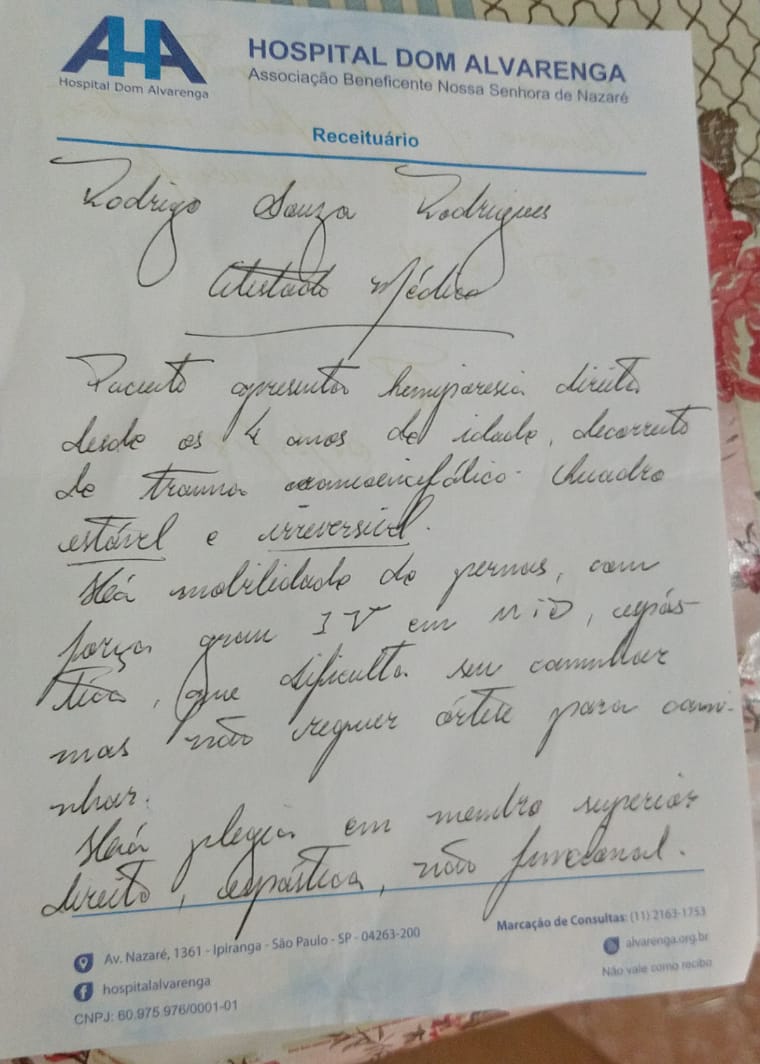 AHA
Hospital Dom Alvarenga
HOSPITAL DOM ALVARENGA
Associação Beneficente Nossa Senhora de Nazaré
Receituário
Rodrigo Souza Rodrigues
Atestado Médico
Paciente apresenta hemiparesia direita
desde os 4 anos de idade, decorrente
de trauma cranioencefálico. Quadro
estável e irreversível.
Há mobilidade de pernas, com
força grau IV em MID, espás-
tica, que dificulta seu caminhar
mas não requer órtese para cami-
nhar.
Há plegia em membro superior
direito, espástica, não funcional.
Av. Nazaré, 1361 - Ipiranga - São Paulo - SP - 04263-200
hospitalalvarenga
CNPJ: 60.975.976/0001-01
Marcação de Consultas: (11) 2163-1753
alvarenga.org.br
Não vale como recibo